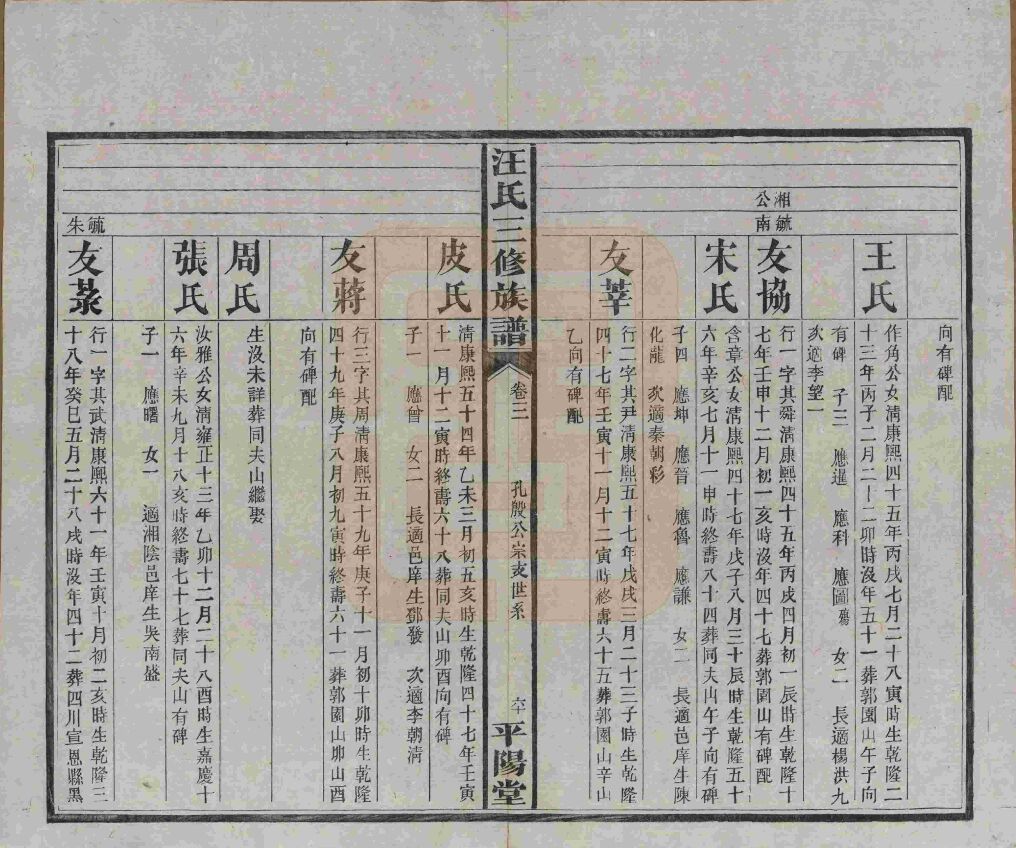 向有碑配
王氏
作角公女淸康熙四十五年丙戌七月二十八寅時生乾隆二
十三年丙子二月二十二卯時沒年五十一葬郭園山午子向
有碑 子三 應暹 應科 應圖殤 女二 長適楊洪九
次適李望一
湘公
毓南
友協
行一字其舜淸康熙四十五年丙戌四月初一辰時生乾隆十
七年壬申十二月初一亥時沒年四十七葬郭園山有碑配
宋氏
含章公女淸康熙四十七年戊子八月三十辰時生乾隆五十
六年辛亥七月十一申時終壽八十四葬同夫山午子向有碑
子四 應坤 應晉 應魯 應謙 女二 長適邑庠生陳
化龍 次適秦朝彩
友莘
行二字其尹淸康熙五十七年戊戌三月二十三子時生乾隆
四十七年壬寅十一月十二寅時終壽六十五葬郭園山辛山
乙向有碑配
汪氏三修族譜
卷三
孔殷公宗支世系
六十
平陽堂
皮氏
淸康熙五十四年乙未三月初五亥時生乾隆四十七年壬寅
十一月十二寅時終壽六十八葬同夫山卯酉向有碑
子一 應曾 女二 長適邑庠生鄧發 次適李朝淸
友蔣
行三字其周淸康熙五十九年庚子十一月初十卯時生乾隆
四十九年庚子八月初九寅時終壽六十一葬郭園山卯山酉
向有碑配
周氏
生沒未詳葬同夫山繼娶
張氏
汝雅公女淸雍正十三年乙卯十二月二十八酉時生嘉慶十
六年辛未九月十八亥時終壽七十七葬同夫山有碑
子一 應曙 女一 適湘陰邑庠生吳南盛
毓朱
友菉
行一字其武淸康熙六十一年壬寅十月初二亥時生乾隆三
十八年癸巳五月二十八戌時沒年四十二葬四川宣恩縣黑